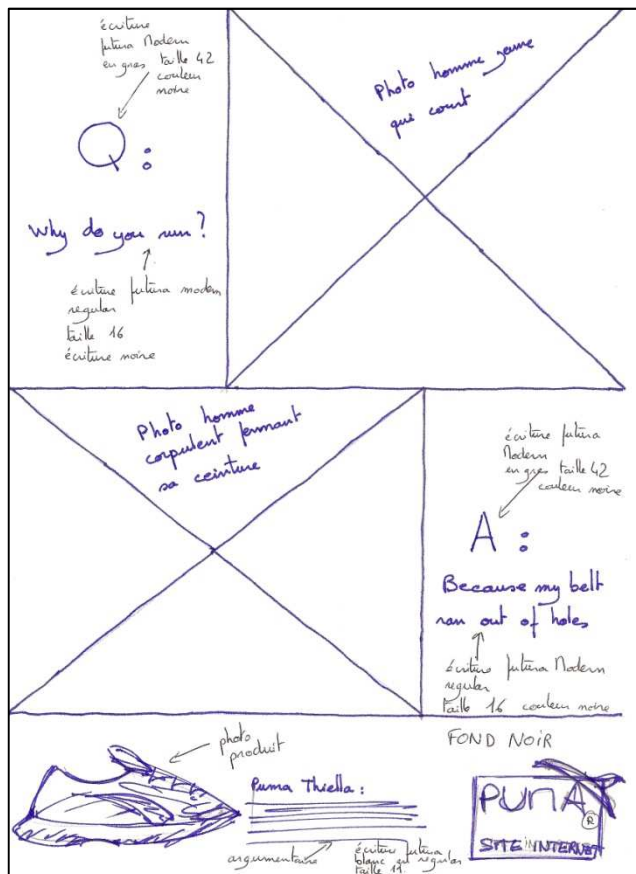 écriture
futura Modern
en gras taille 42
couleur
noire
Q :
Why do you run?
écriture futura modern
regular
taille 16
écriture noire
Photo homme jeune
qui court
Photo homme
corpulent fermant
sa ceinture
écriture futura
Modern
en gras taille 42
couleur noire
A :
Because my belt
ran out of holes
écriture futura Modern
regular
taille 16 couleur noire
FOND NOIR
photo
produit
Puma Thiella :
argumentaire
écriture futura
blanc en regular
taille 11.
PUMA
®
SITE INTERNET